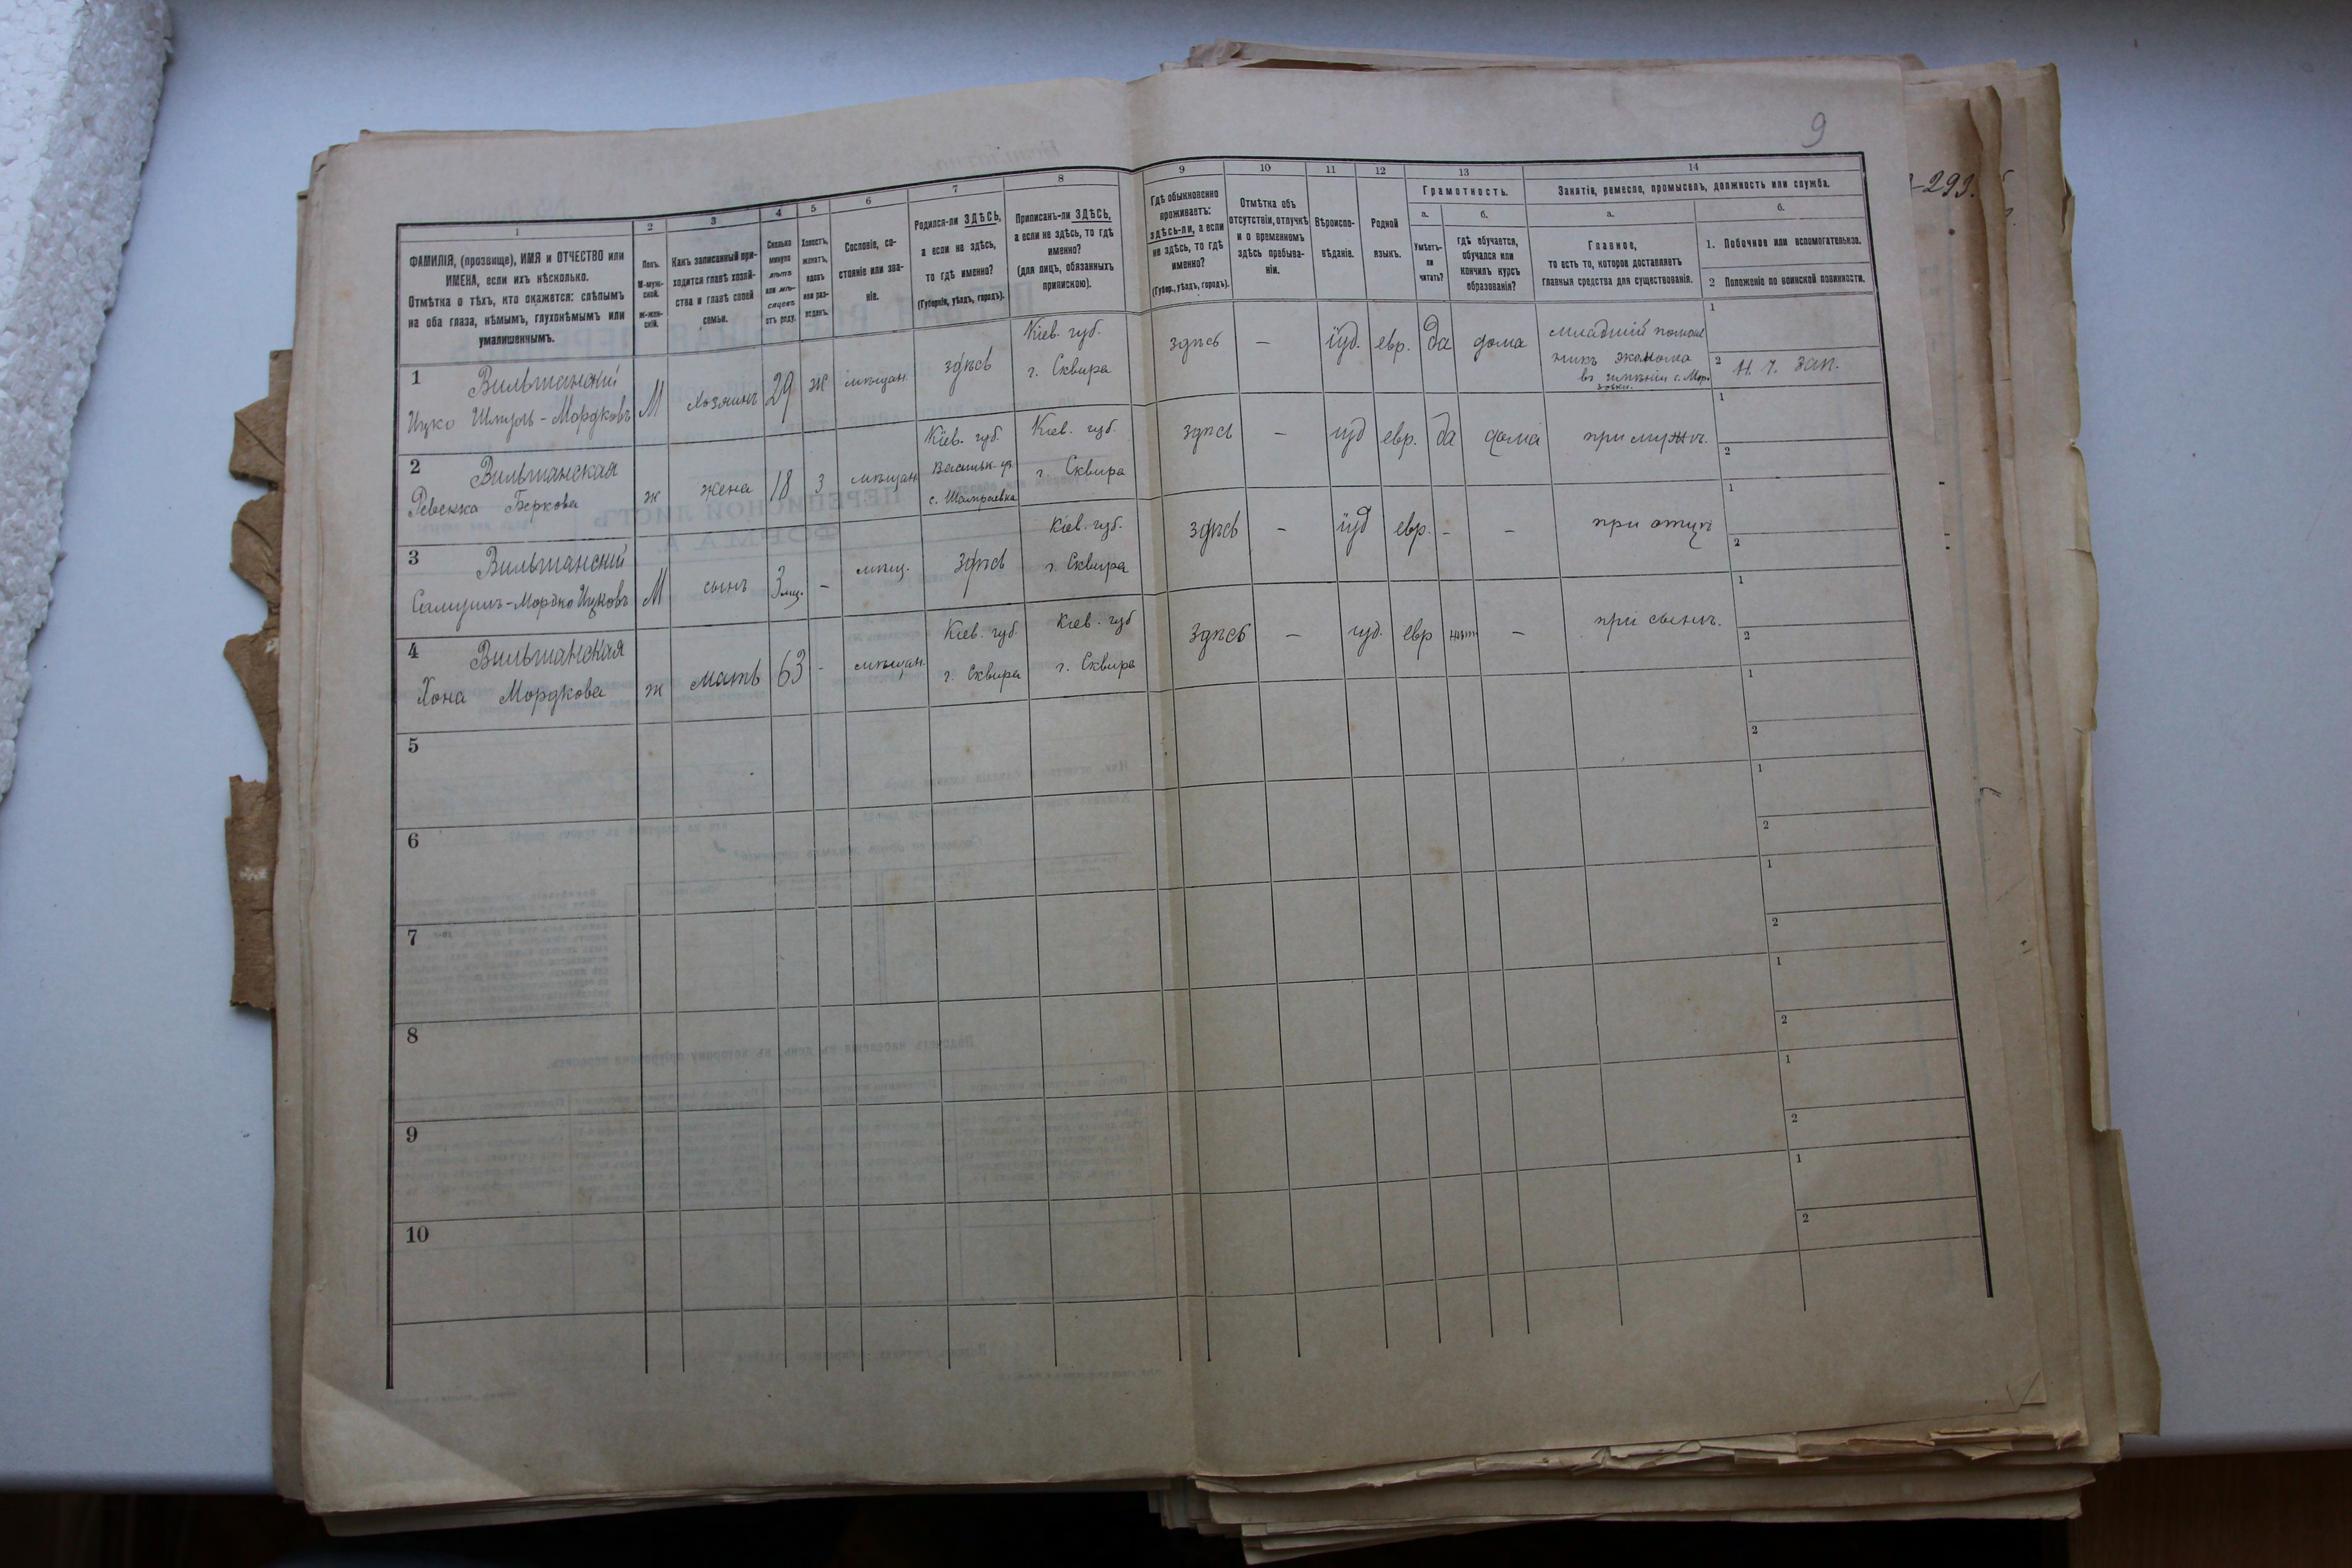 9
-293.
1
ФАМИЛІЯ, (прозвище), ИМЯ и ОТЧЕСТВО или
ИМЕНА, если ихъ нѣсколько.
Отмѣтка о тѣхъ, кто окажется: слѣпымъ
на оба глаза, нѣмымъ, глухонѣмымъ или
умалишеннымъ.
2
Полъ.
М-муж-
ской.
Ж-жен-
скій.
3
Какъ записанный при-
ходится главѣ хозяй-
ства и главѣ своей
семьи.
4
Сколько
минуло
лѣтъ
или мѣ-
сяцевъ
отъ роду.
5
Холостъ,
женатъ,
вдовъ
или раз-
веденъ.
6
Сословіе, со-
стояніе или зва-
ніе.
7
Родился-ли ЗДѢСЬ,
а если не здѣсь,
то гдѣ именно?
(Губернія, уѣздъ, городъ).
8
Приписанъ-ли ЗДѢСЬ,
а если не здѣсь, то гдѣ
именно?
(для лицъ, обязанныхъ
припискою).
9
Гдѣ обыкновенно
проживаетъ:
здѣсь-ли, а если
не здѣсь, то гдѣ
именно?
(Губер., уѣздъ, городъ).
10
Отмѣтка объ
отсутствіи, отлучкѣ
и о временномъ
здѣсь пребыва-
ніи.
11
Вѣроиспо-
вѣданіе.
12
Родной
языкъ.
13
Грамотность.
а.
Умѣетъ-
ли
читать?
б.
гдѣ обучается,
обучался или
кончилъ курсъ
образованія?
14
Занятіе, ремесло, промыселъ, должность или служба.
а.
Главное,
то есть то, которое доставляетъ
главныя средства для существованія.
б.
1. Побочное или вспомогательное.
2 Положеніе по воинской повинности.
1 Вильшанский
Ицко Шмуль-Мордковъ
М
хозяинъ
29
ж
мѣщан.
здѣсь
Кіев. губ.
г. Сквира
здѣсь
—
іуд.
евр.
да
дома
младшій помощ
никъ эконома
въ имѣніи с. Мор-
зовки.
1
2 Н. ч. зап.
2 Вильшанская
Ревекка Беркова
ж
жена
18
з
мѣщан
Кіев. губ.
Васильк. уѣз.
с. Шамраевка
Кіев. губ.
г. Сквира
здѣсь
—
іуд
евр.
да
дома
при мужѣ.
1
2
3 Вильшанский
Самуилъ-Мордко Ицковъ
М
сынъ
3 мц.
-
мѣщ.
здѣсь
Кіев. губ.
г. Сквира
здѣсь
—
іуд
евр.
-
-
при отцѣ
1
2
4 Вильшанская
Хона Мордкова
ж
мать
63
-
мѣщан.
Кіев. губ.
г. Сквира
Кіев. губ
г. Сквира
здѣсь
—
іуд.
евр
нѣт
—
при сынѣ.
1
2
5
1
2
6
1
2
7
1
2
8
1
2
9
1
2
10
1
2